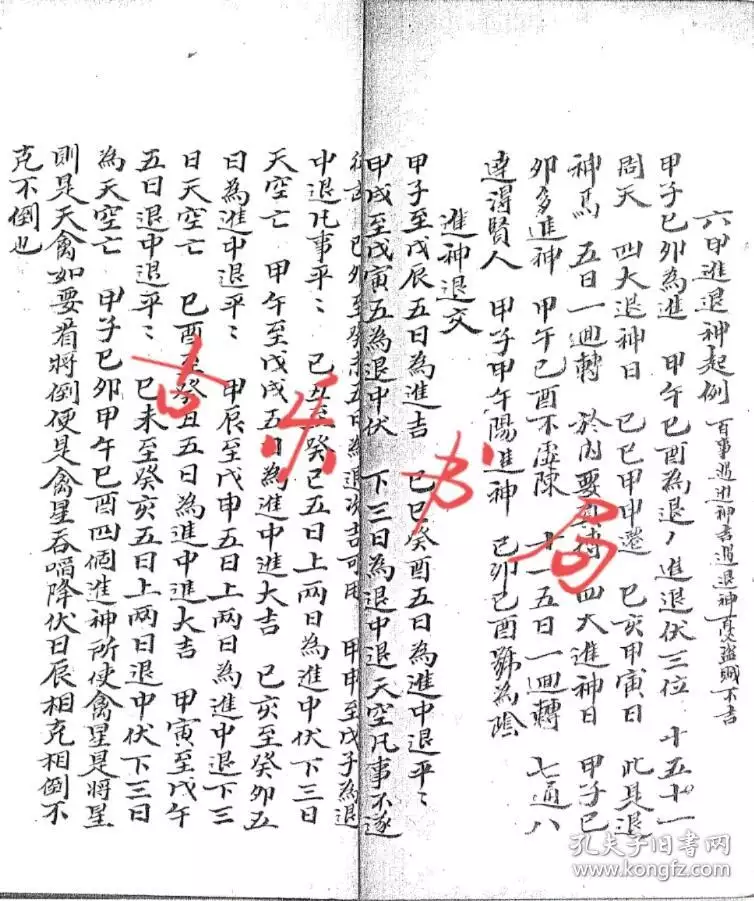 六甲進退神起例 百事遇進神吉遇退神憂盜賊不吉
甲子己卯為進 甲午己酉為退 進退伏三位 十五十一
周天 四大退神日 己巳甲申還 己亥甲寅日 此是退
神焉 五日一迴轉 於內要 四大進神日 甲子己
卯多進神 甲午己酉不虛陳 十一五日一迴轉 七通八
達得賢人 甲子甲午陽進神 己卯己酉號為陰
進神退交
甲子至戊辰五日為進吉 己巳癸酉五日為進中退平〻
甲戌至戊寅五為退中伏 下三日為退中退天空凡事不遂
己卯至癸未五日為 吉可用 甲申至戊子為退
中退凡事平〻 己丑至癸巳五日上兩日為進中伏下三日
天空亡 甲午至戊戌五日為進中進大吉 己亥至癸卯五
日為進中退平〻 甲辰至戊申五日上兩日為進中退下三
日天空亡 己酉至癸丑五日為進中進大吉 甲寅至戊午
五日退中退平〻 己未至癸亥五日上兩日退中伏下三日
為天空亡 甲子己卯甲午己酉四個進神所使禽星是將星
則是天禽如要看將倒便是禽星吞啗降伏日辰相克相倒不
克不倒也
古乐书局
孔夫子旧书网
www.kongfz.com